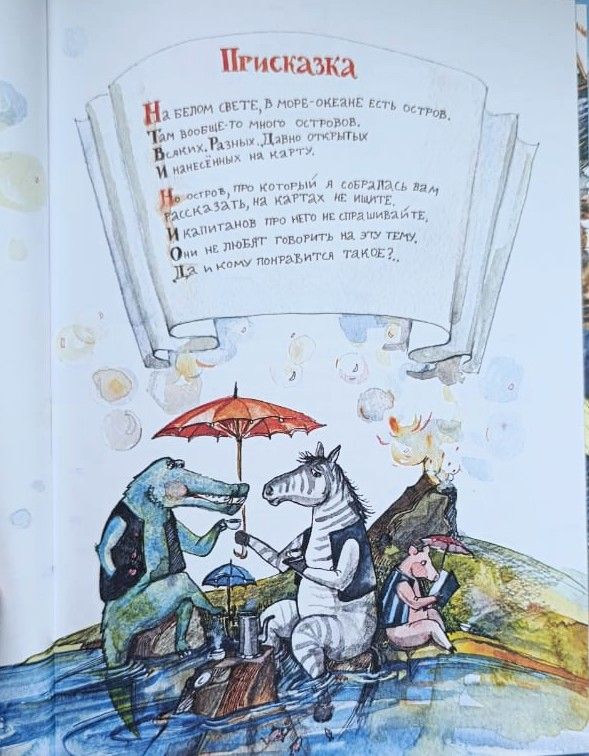 Присказка
На белом свете, в море-океане есть остров.
Там вообще-то много островов.
Всяких. Разных. Давно открытых
И нанесённых на карту.
Но остров, про который я собралась вам
Рассказать, на картах не ищите.
И капитанов про него не спрашивайте,
Они не любят говорить на эту тему.
Да и кому понравится такое?..